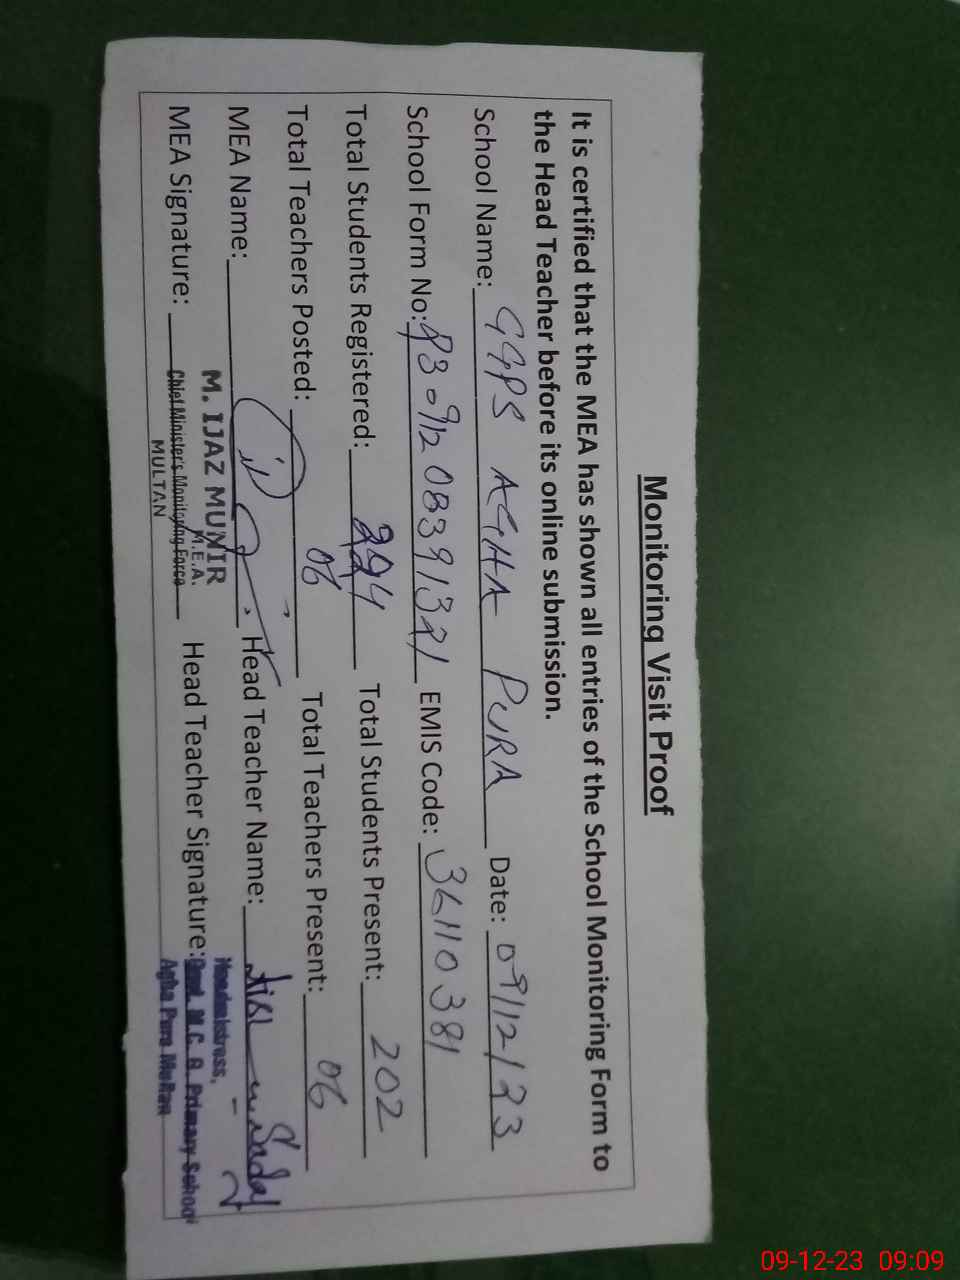 Monitoring Visit Proof
It is certified that the MEA has shown all entries of the School Monitoring Form to
the Head Teacher before its online submission.
School Name: GGPS AGHA PURA Date: 09/12/23
School Form No: EMIS Code: 36110381
Total Students Registered: 224 Total Students Present: 202
Total Teachers Posted: 06 Total Teachers Present: 06
MEA Name: Head Teacher Name:
M. IJAZ MUNIR
M.E.A.
MEA Signature: Chief Minister's Monitoring Force Head Teacher Signature:
MULTAN
Headmistress,
Govt. M.C. G. Primary School
Agha Pura Multan
09-12-23 09:09